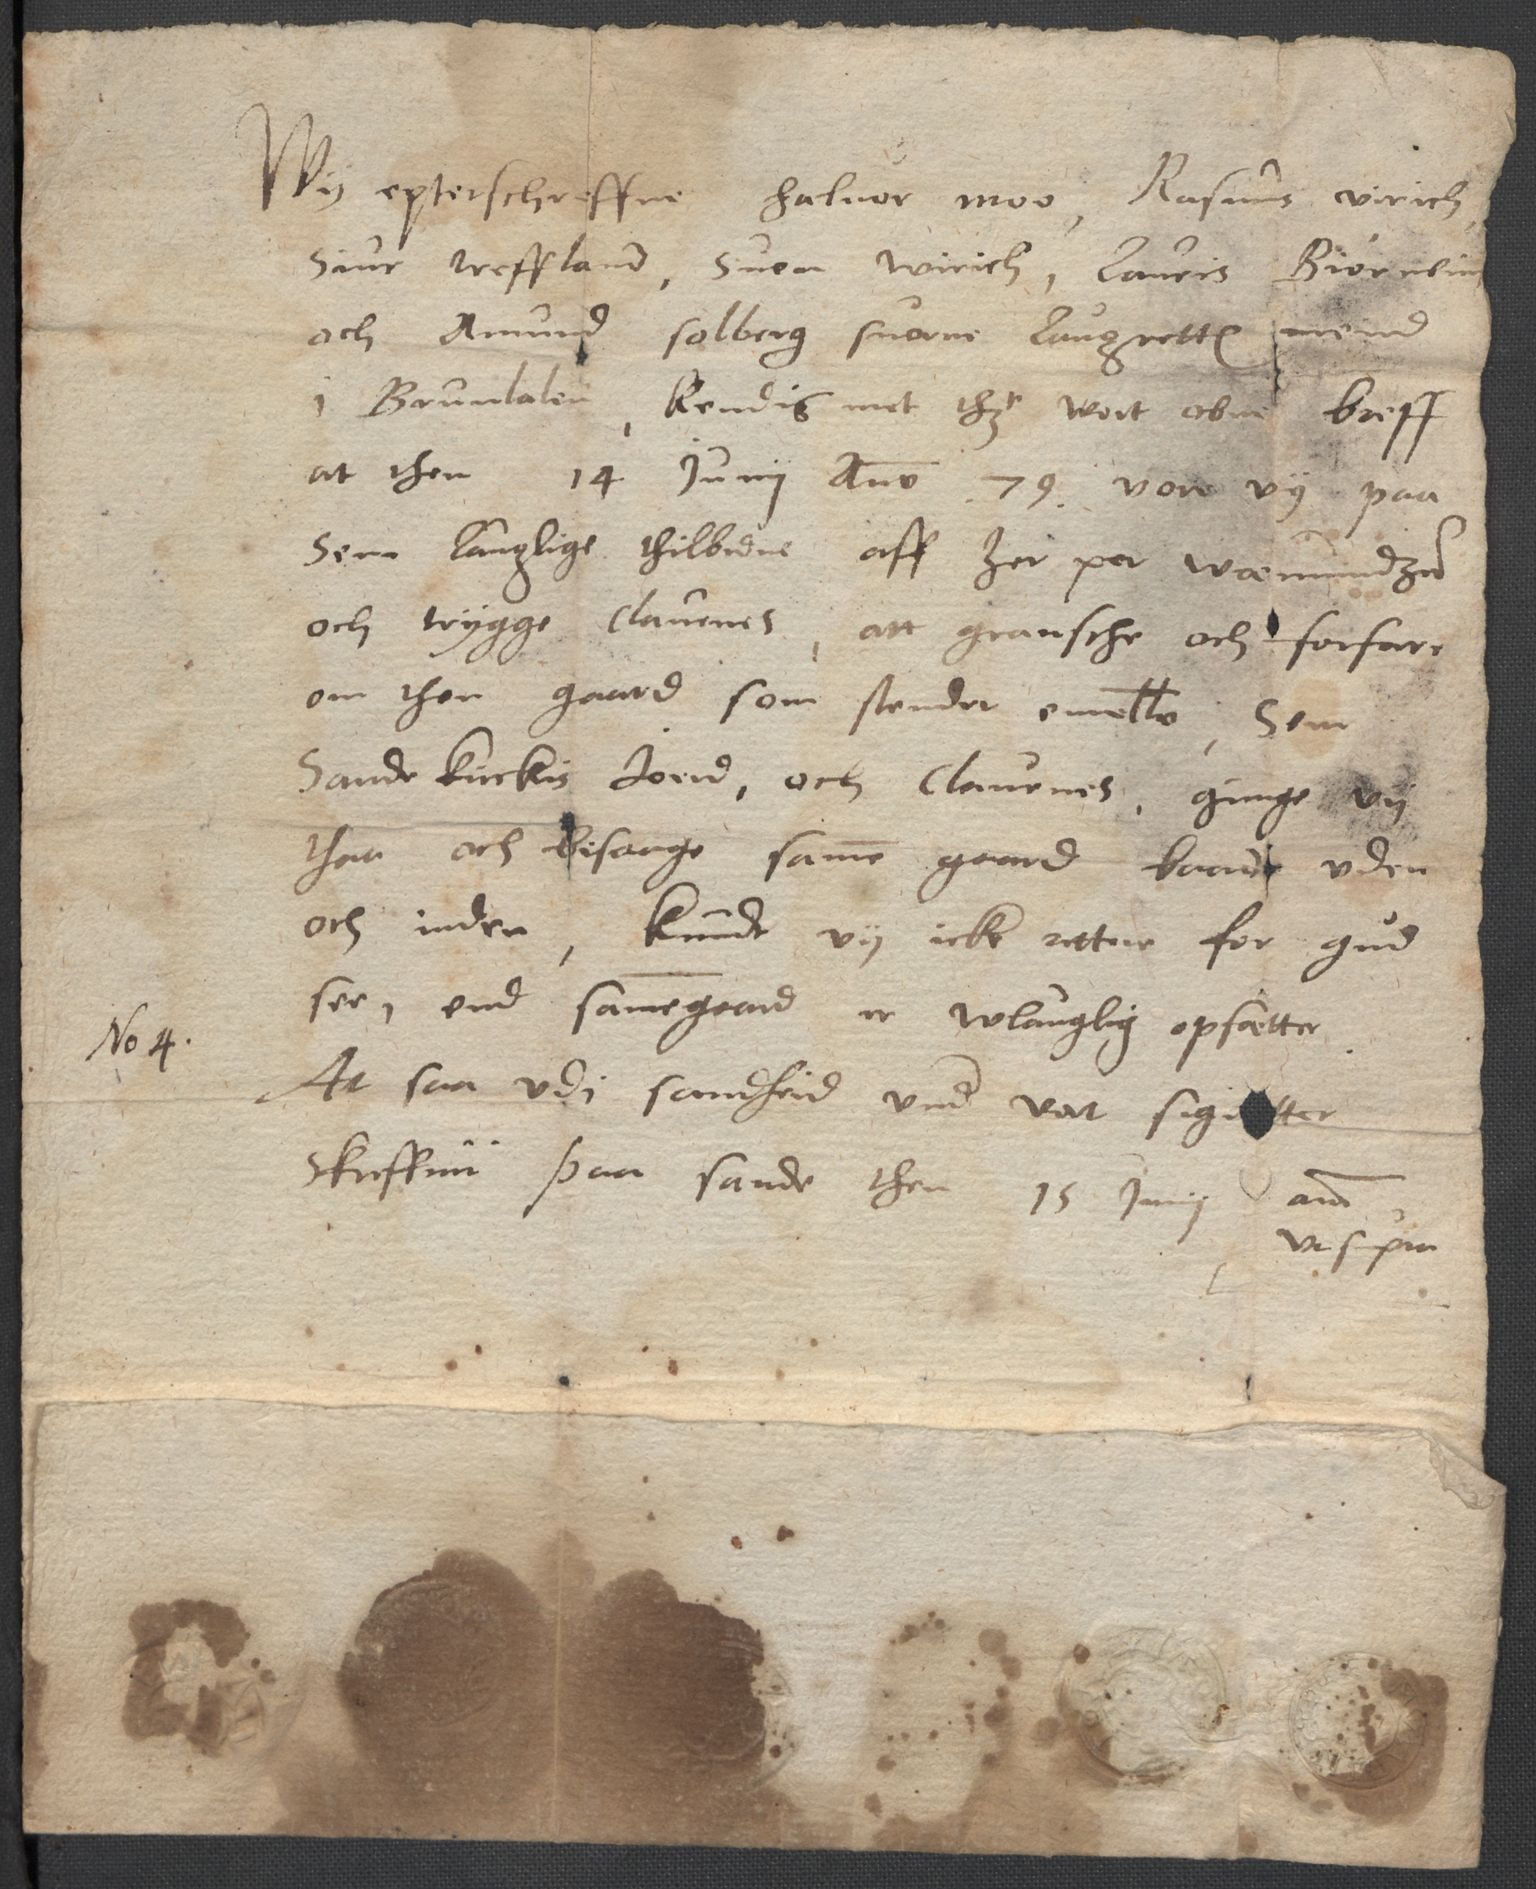 Wij epterschreffne haluor moo, Rasmus virich,
Siur treffland, Suen wirich, Lauris Biørnein
och Amund solberg suorne Laugrettis mend
i Brunlalen, kendis met thz wort obne breff
at then 14 Junij Ano 79. vore vij paa
Sem Lauglige thilbidne aff her per woemundzen
och trygge Clauenes, att granske och forfare
om then gaard som stender emello, Sem
Sande kirckis Joerd, och Clauenes, ginge vij
thaa och besaage same gaard baade vden
och inden, kunde vij icke rettere for gud
see, end same gaard er wlauglig opsetter.
At saa vdi sandheid vnd vort sigitter
Skreffuit paa sande then 15 Junij ano
vt supra
No 4.